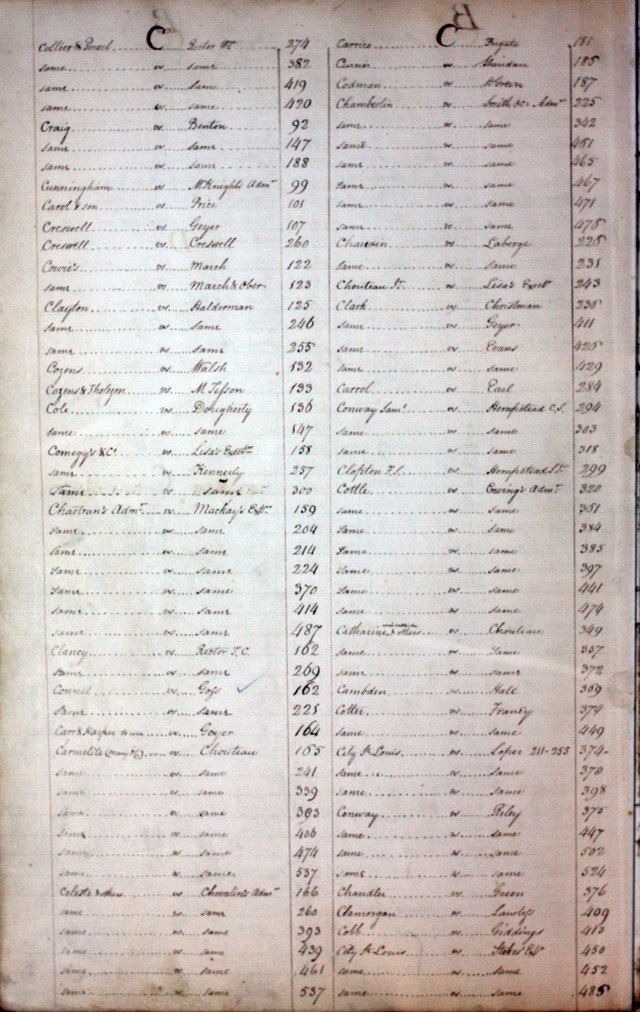 C
Collier & Powel vs Rector Wm 274
same vs same 382
same vs same 419
same vs same 420
Craig vs Benton 92
same vs same 147
same vs same 188
Cunningham vs McKnights Admr 99
Carol & son vs Price 101
Creswell vs Geyer 107
Creswell vs Creswell 260
Cowie's vs March 122
same vs March & Ober 123
Clayton vs Halderman 125
same vs same 246
same vs same 255
Cozens vs Walsh 132
Cozens & Tholozon vs M. Tesson 133
Cole vs Dougherty 136
same vs same 147
Comegy's & Co vs Lisa's Exctr 158
same vs Kennerly 257
same vs same 300
Chartran's Admr vs Mackay's Extr 159
same vs same 204
same vs same 214
same vs same 224
same vs same 370
same vs same 414
same vs same 487
Clancy vs Rector T.C. 162
same vs same 269
Connel vs Goss 162
same vs same 221
Carr & Harper vs Geyer 164
Carmelite vs Chouteau 165
same vs same 241
same vs same 339
same vs same 393
same vs same 406
same vs same 474
same vs same 537
Celeste & others vs Chevalier's Admr 166
same vs same 260
same vs same 393
same vs same 439
same vs same 461
same vs same 537
C
Carrico vs Fugate 181
vs Sheridan 185
Codman vs 187
Chamberlin vs Smith &c Admr 225
same vs same 342
same vs same 451
same vs same 465
same vs same 467
same vs same 471
same vs same 478
Chauvin vs Laberge 228
same vs same 231
Chouteau Sr. vs Lisa's Exctr 243
Clark vs Christman 235
same vs Geyer 411
same vs Evans 425
same vs same 429
Carrol vs Earl 284
Conway Saml vs Hempstead C.S. 294
same vs same 303
same vs same 318
Clopton F.S. vs Hempstead St. 299
Cottle vs Ewing's Admr 320
same vs same 351
same vs same 384
same vs same 385
same vs same 397
same vs same 441
same vs same 474
Catharine & others vs Chouteau 349
same vs same 357
same vs same 372
Cambden vs Hall 369
Cotter vs 374
same vs same 449
City St Louis vs Loper 211-255 374
same vs same 378
same vs same 398
Conway vs Riley 375
same vs same 447
same vs same 502
same vs same 524
Chandler vs Green 376
Clamorgan vs Lawless 409
Cobb vs Giddings 413
City St Louis vs Stokes Extr 450
same vs same 452
same vs same 485